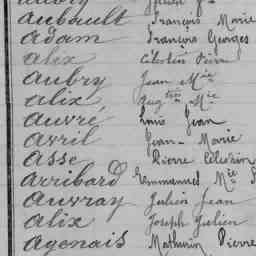 Aubry Julien
Aubault François Marie
Adam François Georges
Alix Célestin Pierre
Aubry Jean Mie
Alix Augtin Mie
Auvré Louis Jean
Avril Jean-Marie
Asse Pierre Célestin
Arribard Emmanuel Mie
Auvray Julien Jean
Alix Joseph Julien
Agenais Mathurin Pierre